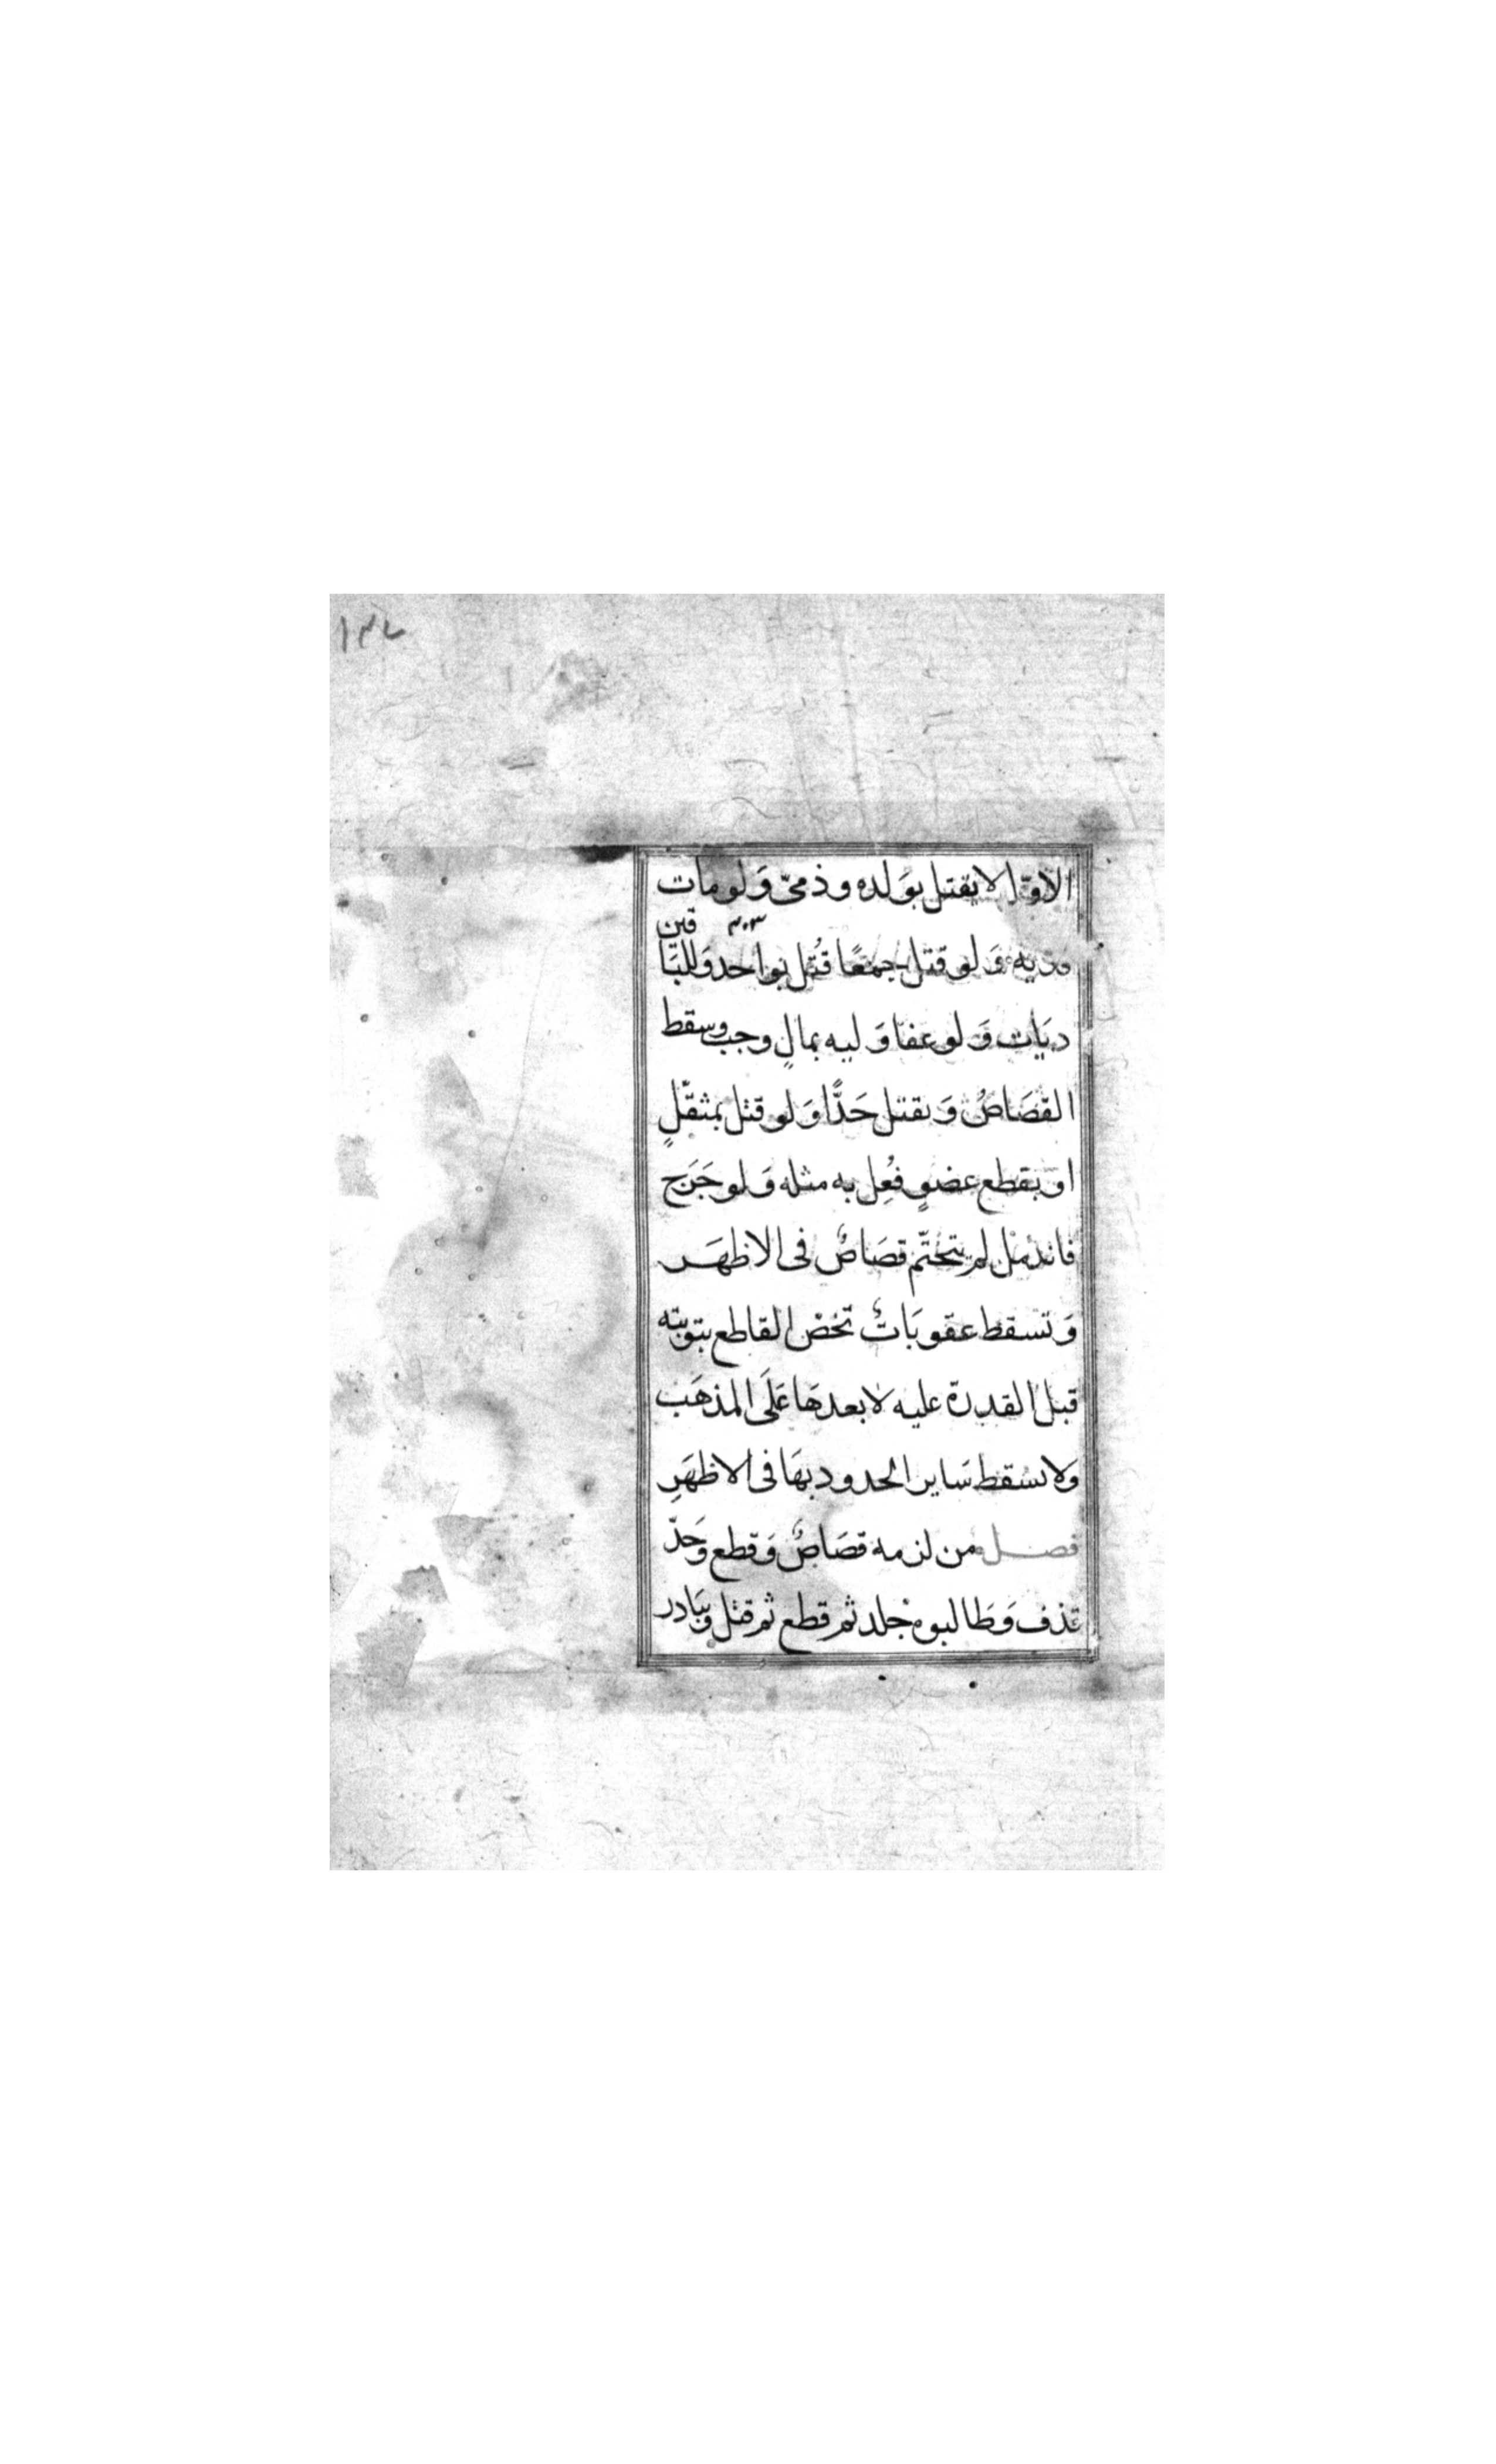 ١٣٧
الاوّل لا يقتل بوَلده وذمىّ وَلو مات
فديه وَلو قتل جمعًا قُتل بواحد وَللبَا
قين
ديَات وَلو عفا وَليه بمالٍ وجب وسقط
القصَاصُ وَيقتل حَدًّا وَلو قتل بمثقّلٍ
او بقطع عضوٍ فُعِل به مثله وَلو جَرَح
فاندمل لم يتحتّم قصَاصٌ فى الاظهَر
وَتسقط عقوبَاتٌ تخصّ القاطع بتوبته
قبل القدرة عليه لا بعدهَا عَلَى المذهَب
ولا تسقط سَاير الحدود بهَا فى الاظهَرِ
فصل من لزمه قصَاصٌ وَقطع وَحَدّ
قذف وَطَالبوه جلد ثم قطع ثم قتل وَيبَادر